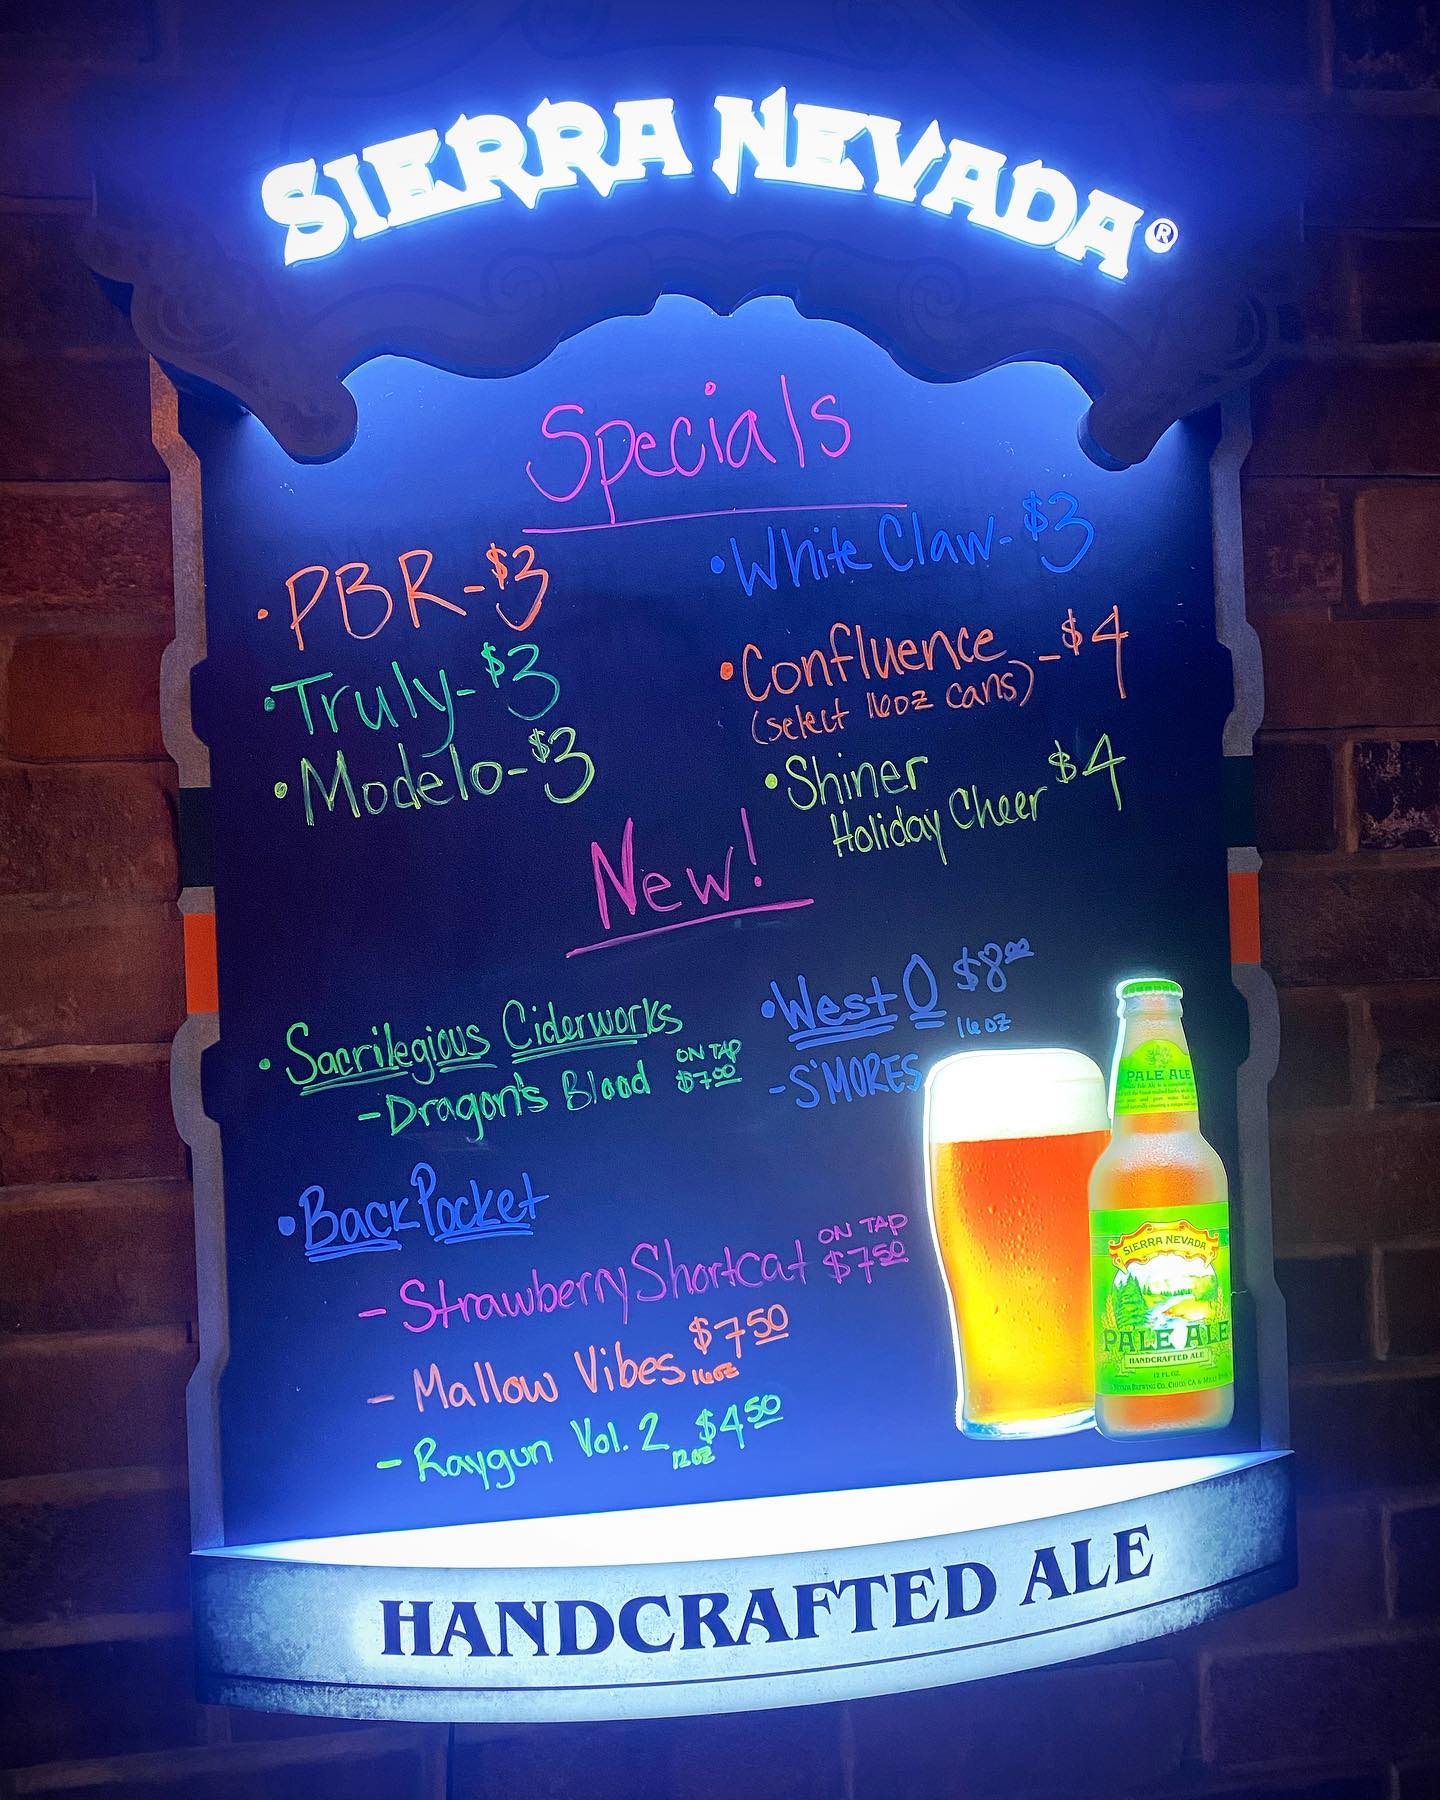 SIERRA NEVADA®
Specials
• PBR - $3
• Truly - $3
• Modelo - $3
• White Claw - $3
• Confluence - $4
(select 16oz cans)
• Shiner $4
Holiday Cheer
New!
• Sacrilegious Ciderworks
- Dragon's Blood ON TAP $7.00
• West O $8.00
16oz
- S'MORES
• BackPocket
- Strawberry Shortcat ON TAP $7 50
- Mallow Vibes 16oz $7 50
- Raygun Vol. 2 12oz $4 50
PALE ALE
SIERRA NEVADA
PALE ALE
HANDCRAFTED ALE
12 FL. OZ.
HANDCRAFTED ALE